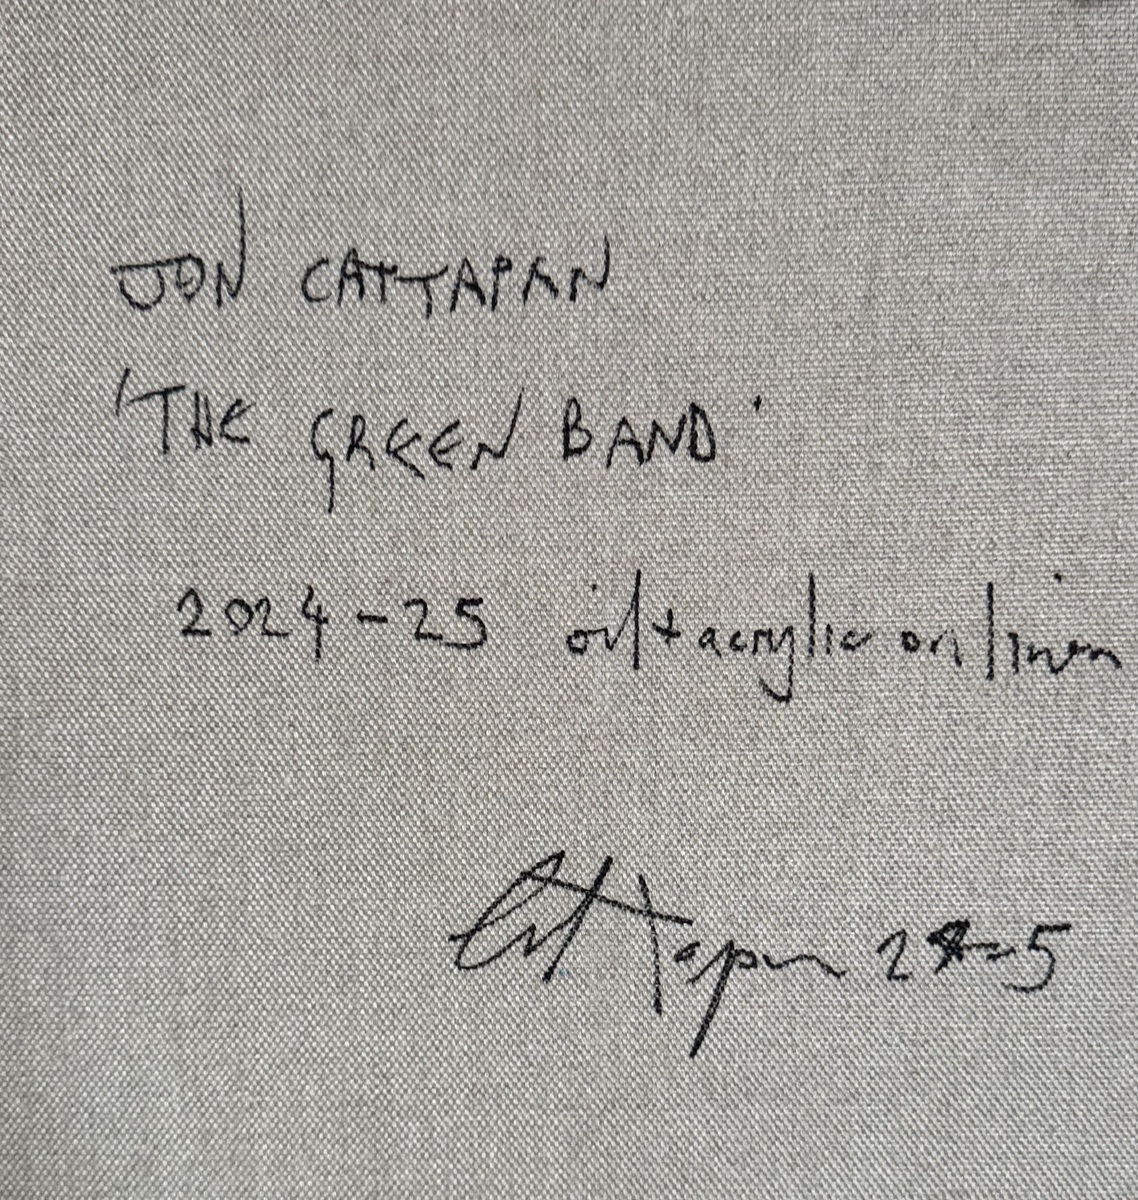 JON CATTAPAN
'THE GREEN BAND'
2024-25 oil + acrylic on linen
Cattapan 24-5